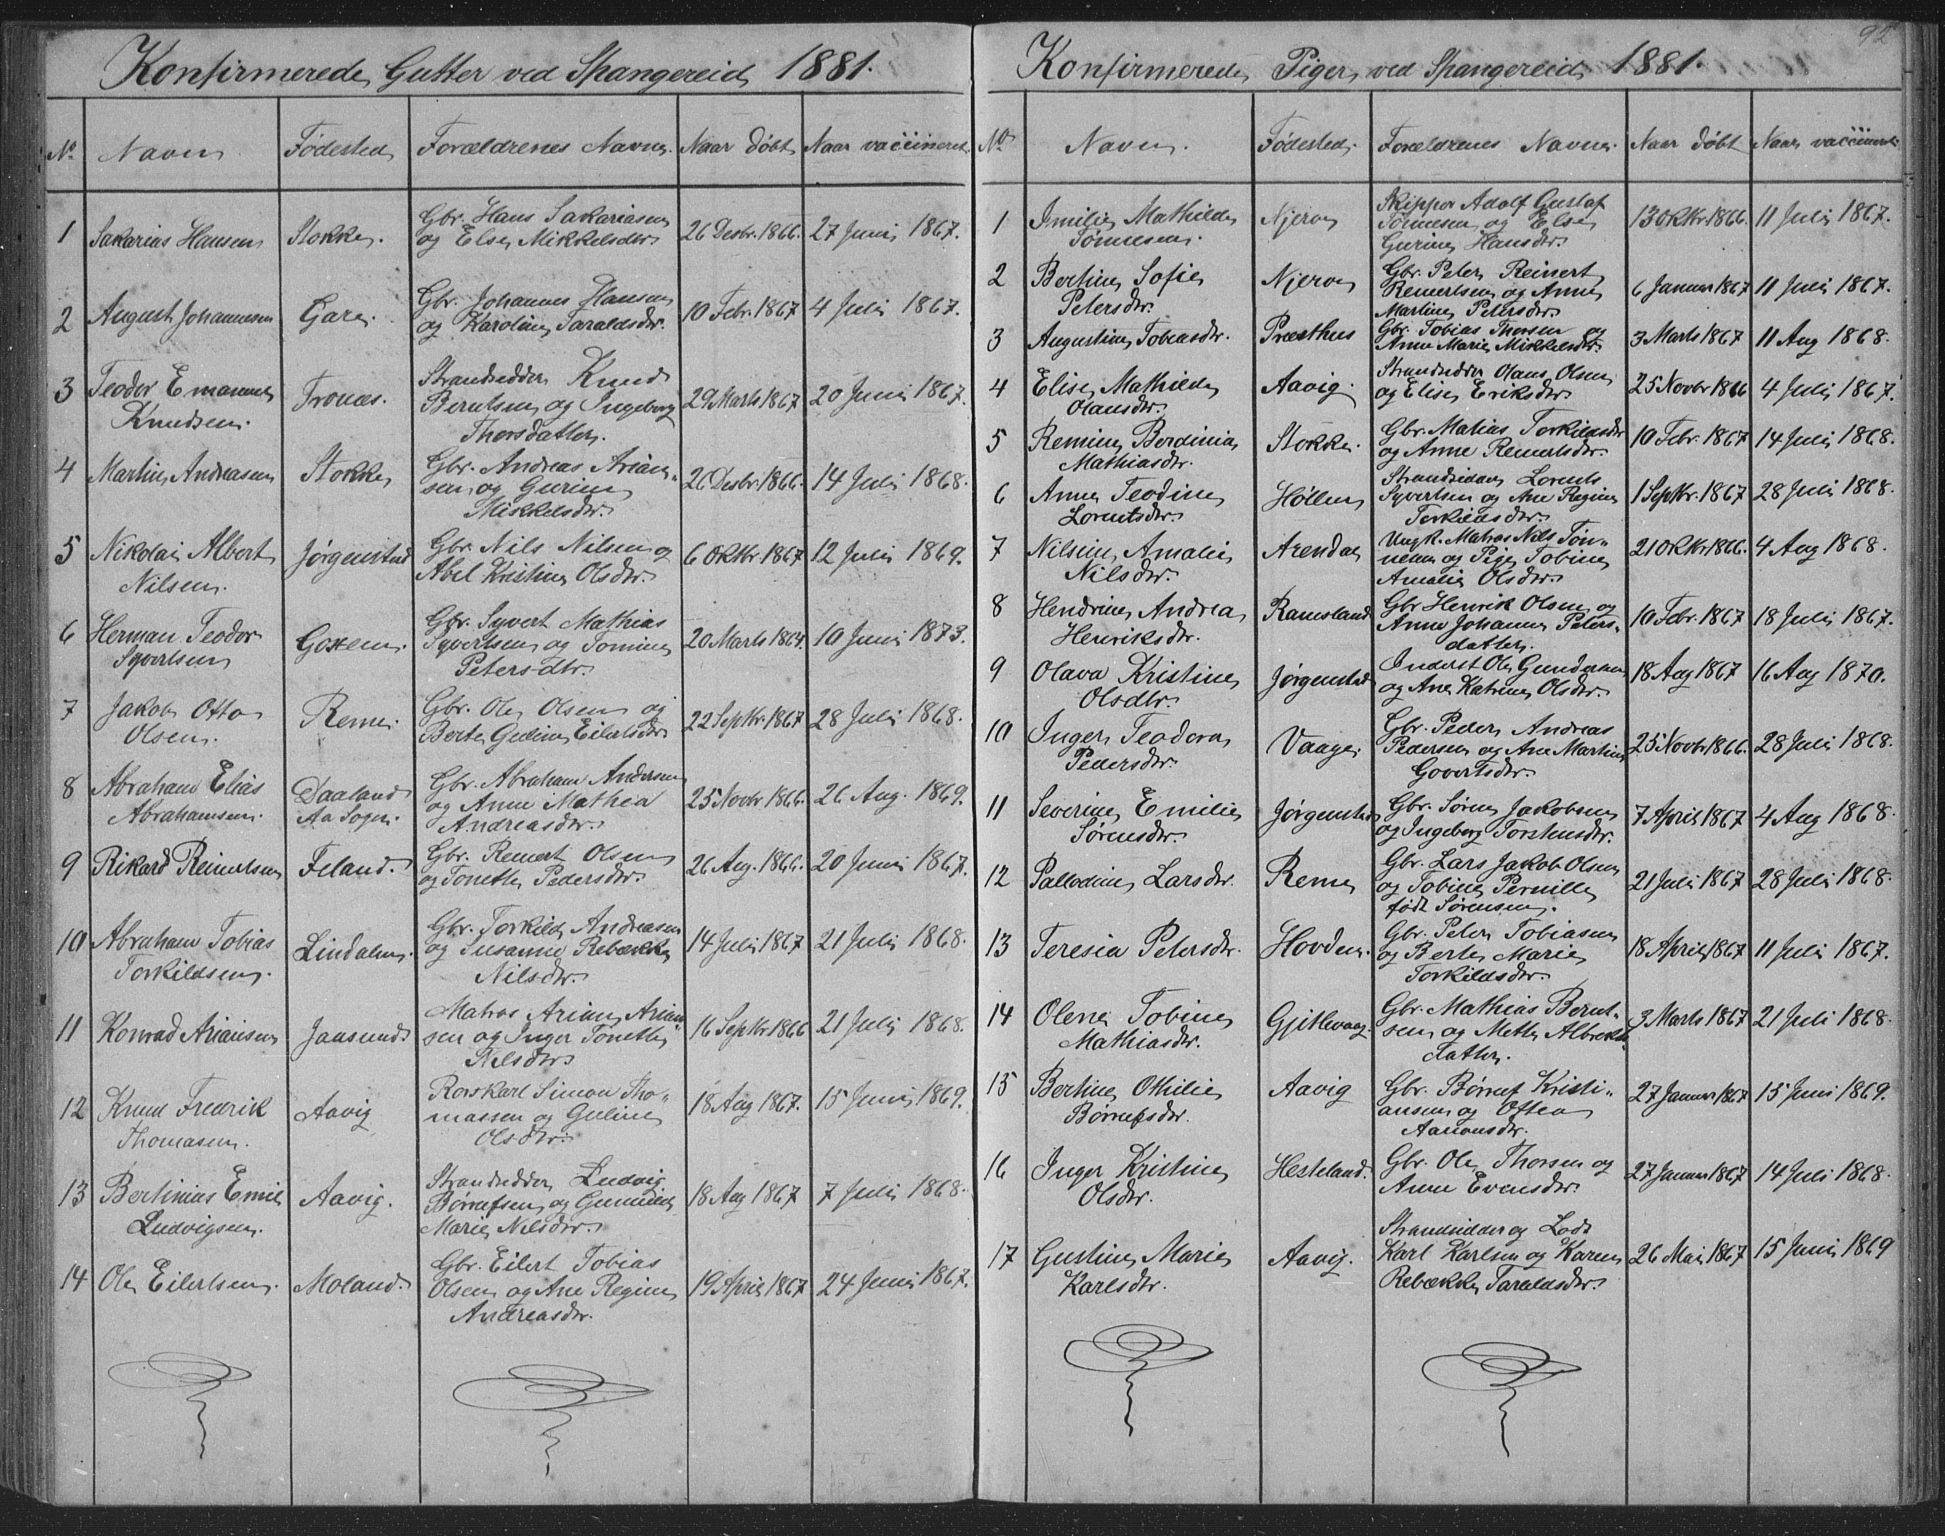 Konfirmerede Gutter ved Spangereid 1881.
No Navn Fødested Forældrenes Navne Naar døbt Naar vaccineret
1 Sakarias Hansen Stokke. Gbr. Hans Sakariasen 26 Desbr. 1866. 27 Juni 1867.
og Else Mikkelsdtr.
2 August Johannesen Gare. Gbr. Johannes Hansen 10 Febr. 1867 4 Juli 1867.
og Karoline Taraldsdtr.
3 Teodor Emanuel Tronæs. Strandsidder Knud 29 Marts 1867 20 Juni 1867.
Knudsen. Berntsen og Ingeborg
Thorsdatter.
4 Martin Andreasen Stokke Gbr. Andreas Arian- 26 Desbr. 1866. 14 Juli 1868.
sen og Gurine
Mikkelsdtr.
5 Nikolai Albert Jørgenstad Gbr. Nils Nilsen og 6 Oktbr 1867 12 Juli 1869.
Nilsen. Abel Kristine Olsdtr.
6 Herman Teodor Goxem. Gbr. Syvert Mathias 20 Marts 1864. 10 Juni 1873.
Syvertsen Syvertsen og Tomine
Petersdtr.
7 Jakob Otto Reme. Gbr. Ole Olsen og 22 Septbr. 1867 28 Juli 1868.
Olsen. Berte Guline Eilertsdtr
8 Abraham Elias Daaland Gbr. Abraham Andersen 25 Novbr 1866. 26 Aug. 1869.
Abrahamsen. Aa Sogn. og Anne Mathea
Andreasdtr.
9 Rikard Reinertsen Feland. Gbr. Reinert Olsen 26 Aug. 1866. 20 Juni 1867.
og Tonette Pedersdtr.
10 Abraham Tobias Lindalen. Gbr. Torkild Andreasen 14 Juli 1867 21 Juli 1868.
Torkildsen. og Susanne Rebække
Nilsdtr.
11 Konrad Ariansen Jaasund Matros Arian Arian- 16 Septbr 1866 21 Juli 1868.
sen og Inger Tonette
Nilsdtr.
12 Knud Fredrik Aavig Rorskarl Simon Tho- 18 Aug 1867. 15 Juni 1869.
Thomasen. massen og Guline
Olsdtr.
13 Bertinius Emil Aavig. Strandsidder Ludvig 18 Aug 1867 7 Juli 1868.
Ludvigsen. Børrufsen og Gunnild
Marie Nilsdtr.
14 Ole Eilertsen. Moland. Gbr. Eilert Tobias 19 April 1867 24 Juni 1867.
Olsen og Ane Regine
Andreasdtr.
92
Konfirmerede Piger ved Spangereid 1881.
No Navn. Fødested. Forældrenes Navne. Naar døbt Naar vaccineret
1 Imilie Mathilde Njerve Skipper Adolf Gustaf 13 Oktbr 1866. 11 Juli 1867.
Tønnesen. Tønnesen og Else
Gurine Hansdtr.
2 Bertine Sofie Njerve Gbr. Peter Reinert 6 Januar 1867 11 Juli 1867.
Petersdtr. Reinertsen og Anne
Martine Petersdtr.
3 Augustine Tobiasdtr. Præsthus Gbr. Tobias Thorsen og 3 Marts 1867 11 Aug 1868.
Anne Marie Mikkelsdtr.
4 Elise Mathilde Aavig. Strandsidder Olaus Olsen 25 Novbr 1866 4 Juli 1867.
Olausdtr. og Elise Eriksdtr.
5 Remine Berdinia Stokke. Gbr. Matias Torkildsen 10 Febr. 1867 14 Juli 1868.
Mathiasdtr. og Anne Reinertsdtr.
6 Anne Teodine Høllen Strandsidder Lorents 1 Septbr. 1867 28 Juli 1868.
Lorentsdtr. Syvertsen og Ane Regine
Torkildsdtr.
7 Nilsine Amalie Arendal Ungk. Matros Nils Tøn- 21 Oktbr 1866. 4 Aug 1868.
Nilsdtr. nesen og Pige Tobine
Amalie Olsdtr.
8 Hendrine Andrea Ramsland Gbr Henrik Olsen og 10 Febr. 1867 18 Juli 1867.
Henriksdtr. Anne Johanne Peters-
datter.
9 Olava Kristine Jørgenstad Inderst Ole Gundersen 18 Aug 1867 16 Aug 1870.
Olsdtr. og Ane Katrine Olsdtr.
10 Inger Teodora Vaage. Gbr. Peder Andreas 25 Novbr 1866. 28 Juli 1868.
Pedersdtr. Pedersen og Ane Martine
Govertsdtr.
11 Severine Emilie Jørgenstad Gbr. Søren Jakobsen 7 April 1867 4 Aug 1868.
Sørensdtr. og Ingeborg Torstensdtr.
12 Palladine Larsdtr. Reme Gbr. Lars Jakob Olsen 21 Juli 1867 28 Juli 1868.
og Tobine Pernille
født Sørensen.
13 Teresia Petersdtr. Hovden. Gbr. Peter Tobiasen 18 April 1867 11 Juli 1867.
og Berte Marie
Torkildsdtr.
14 Olene Tobine Gjitlevaag. Gbr. Mathias Bernt- 3 Marts 1867 21 Juli 1868.
Mathiasdtr. sen og Mette Albrekts-
datter.
15 Bertine Othilie Aavig Gbr. Børruf Kristi- 27 Januar 1867 15 Juni 1869.
Børrufsdtr. ansen og Oftea
Aanonsdtr.
16 Inger Kristine Hesteland. Gbr. Ole Thorsen og 27 Januar 1867 14 Juli 1868.
Olsdtr. Anne Evensdtr.
17 Gustine Marie Aavig. Strandsidder og Lods 26 Mai 1867 15 Juni 1869
Karlsdtr. Karl Karlsen og Karen
Rebække Taraldsdtr.